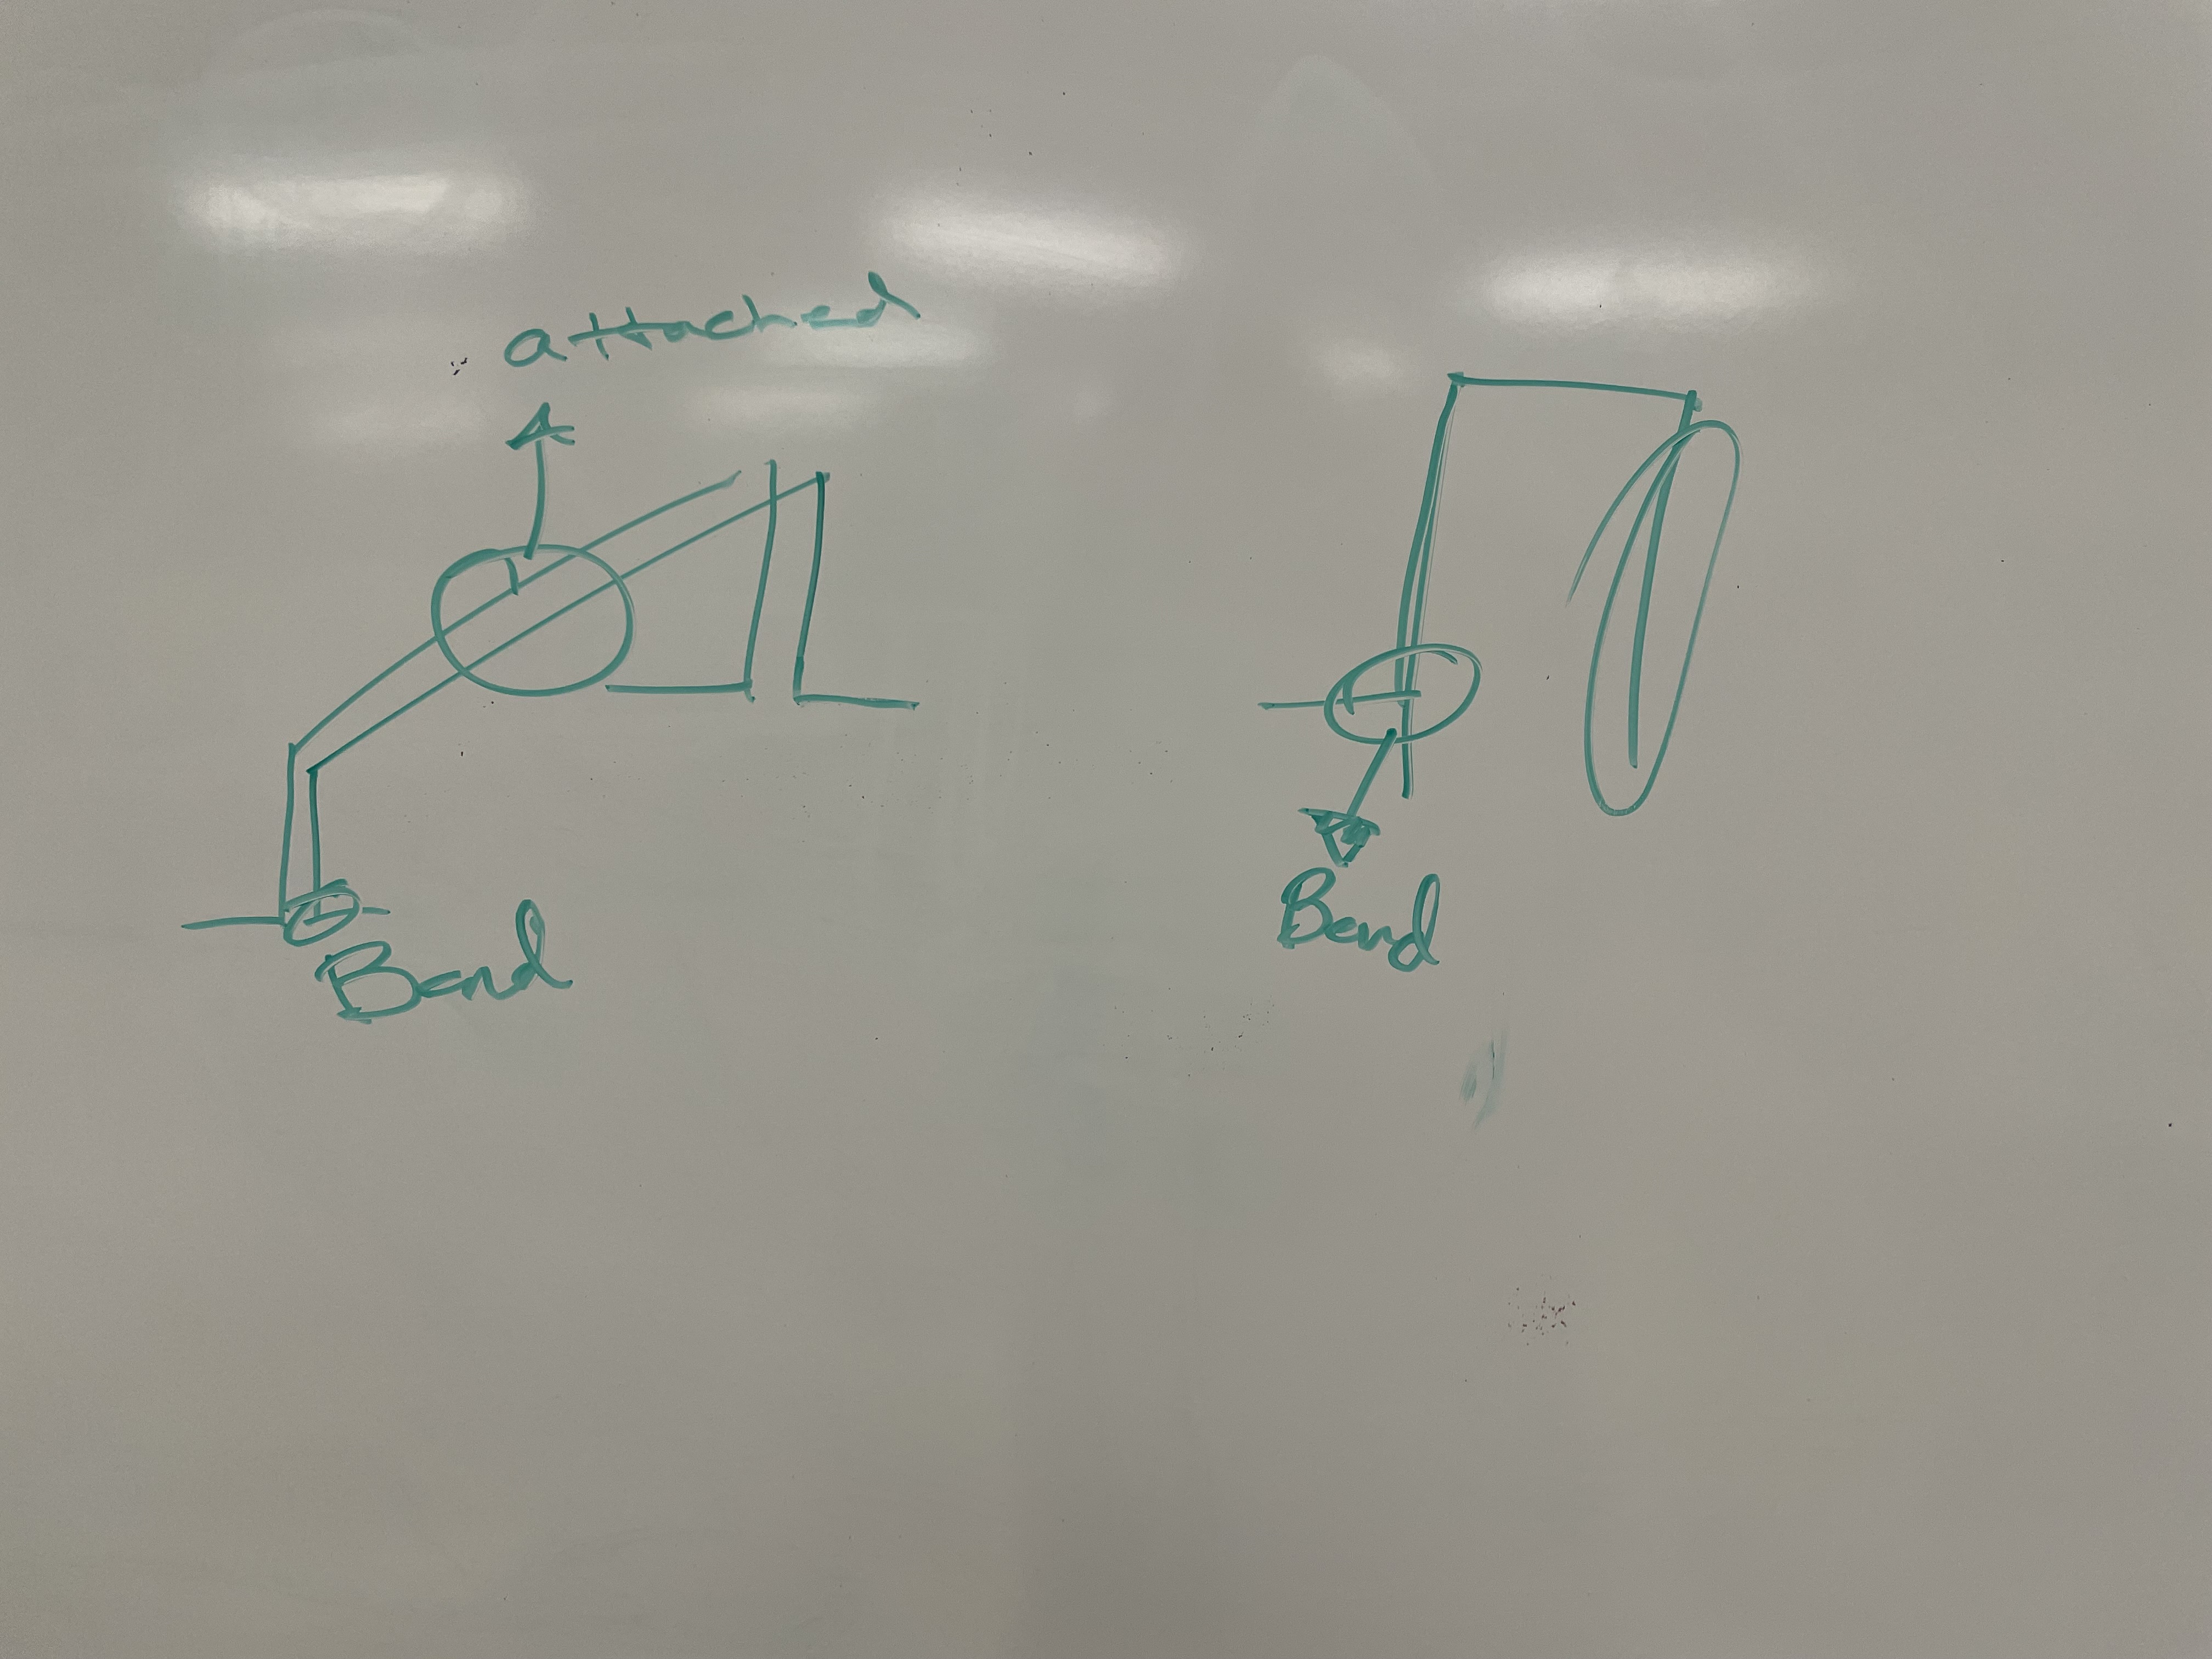 attached
Bend
Bend